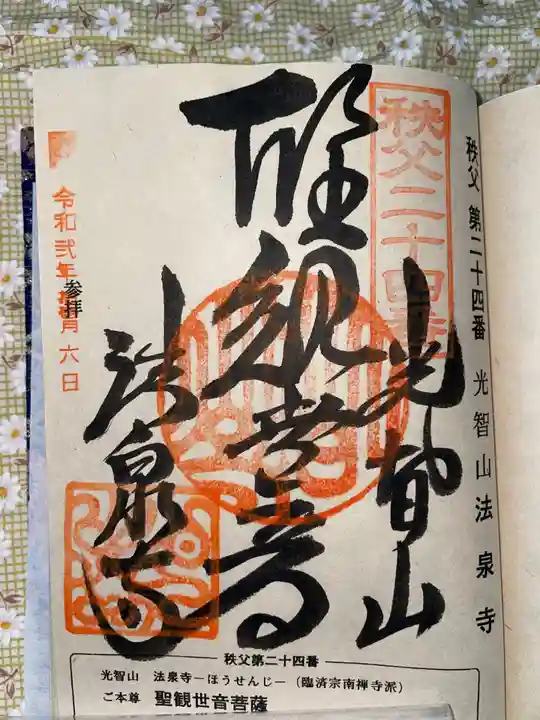 秩父 第二十四番 光智山法泉寺
秩父二十四番
光智山
聖観世音
法泉寺
令和弐年
月六日
参拝
秩父第二十四番
光智山 法泉寺－ほうせんじ－(臨済宗南禅寺派)
ご本尊 聖観世音菩薩